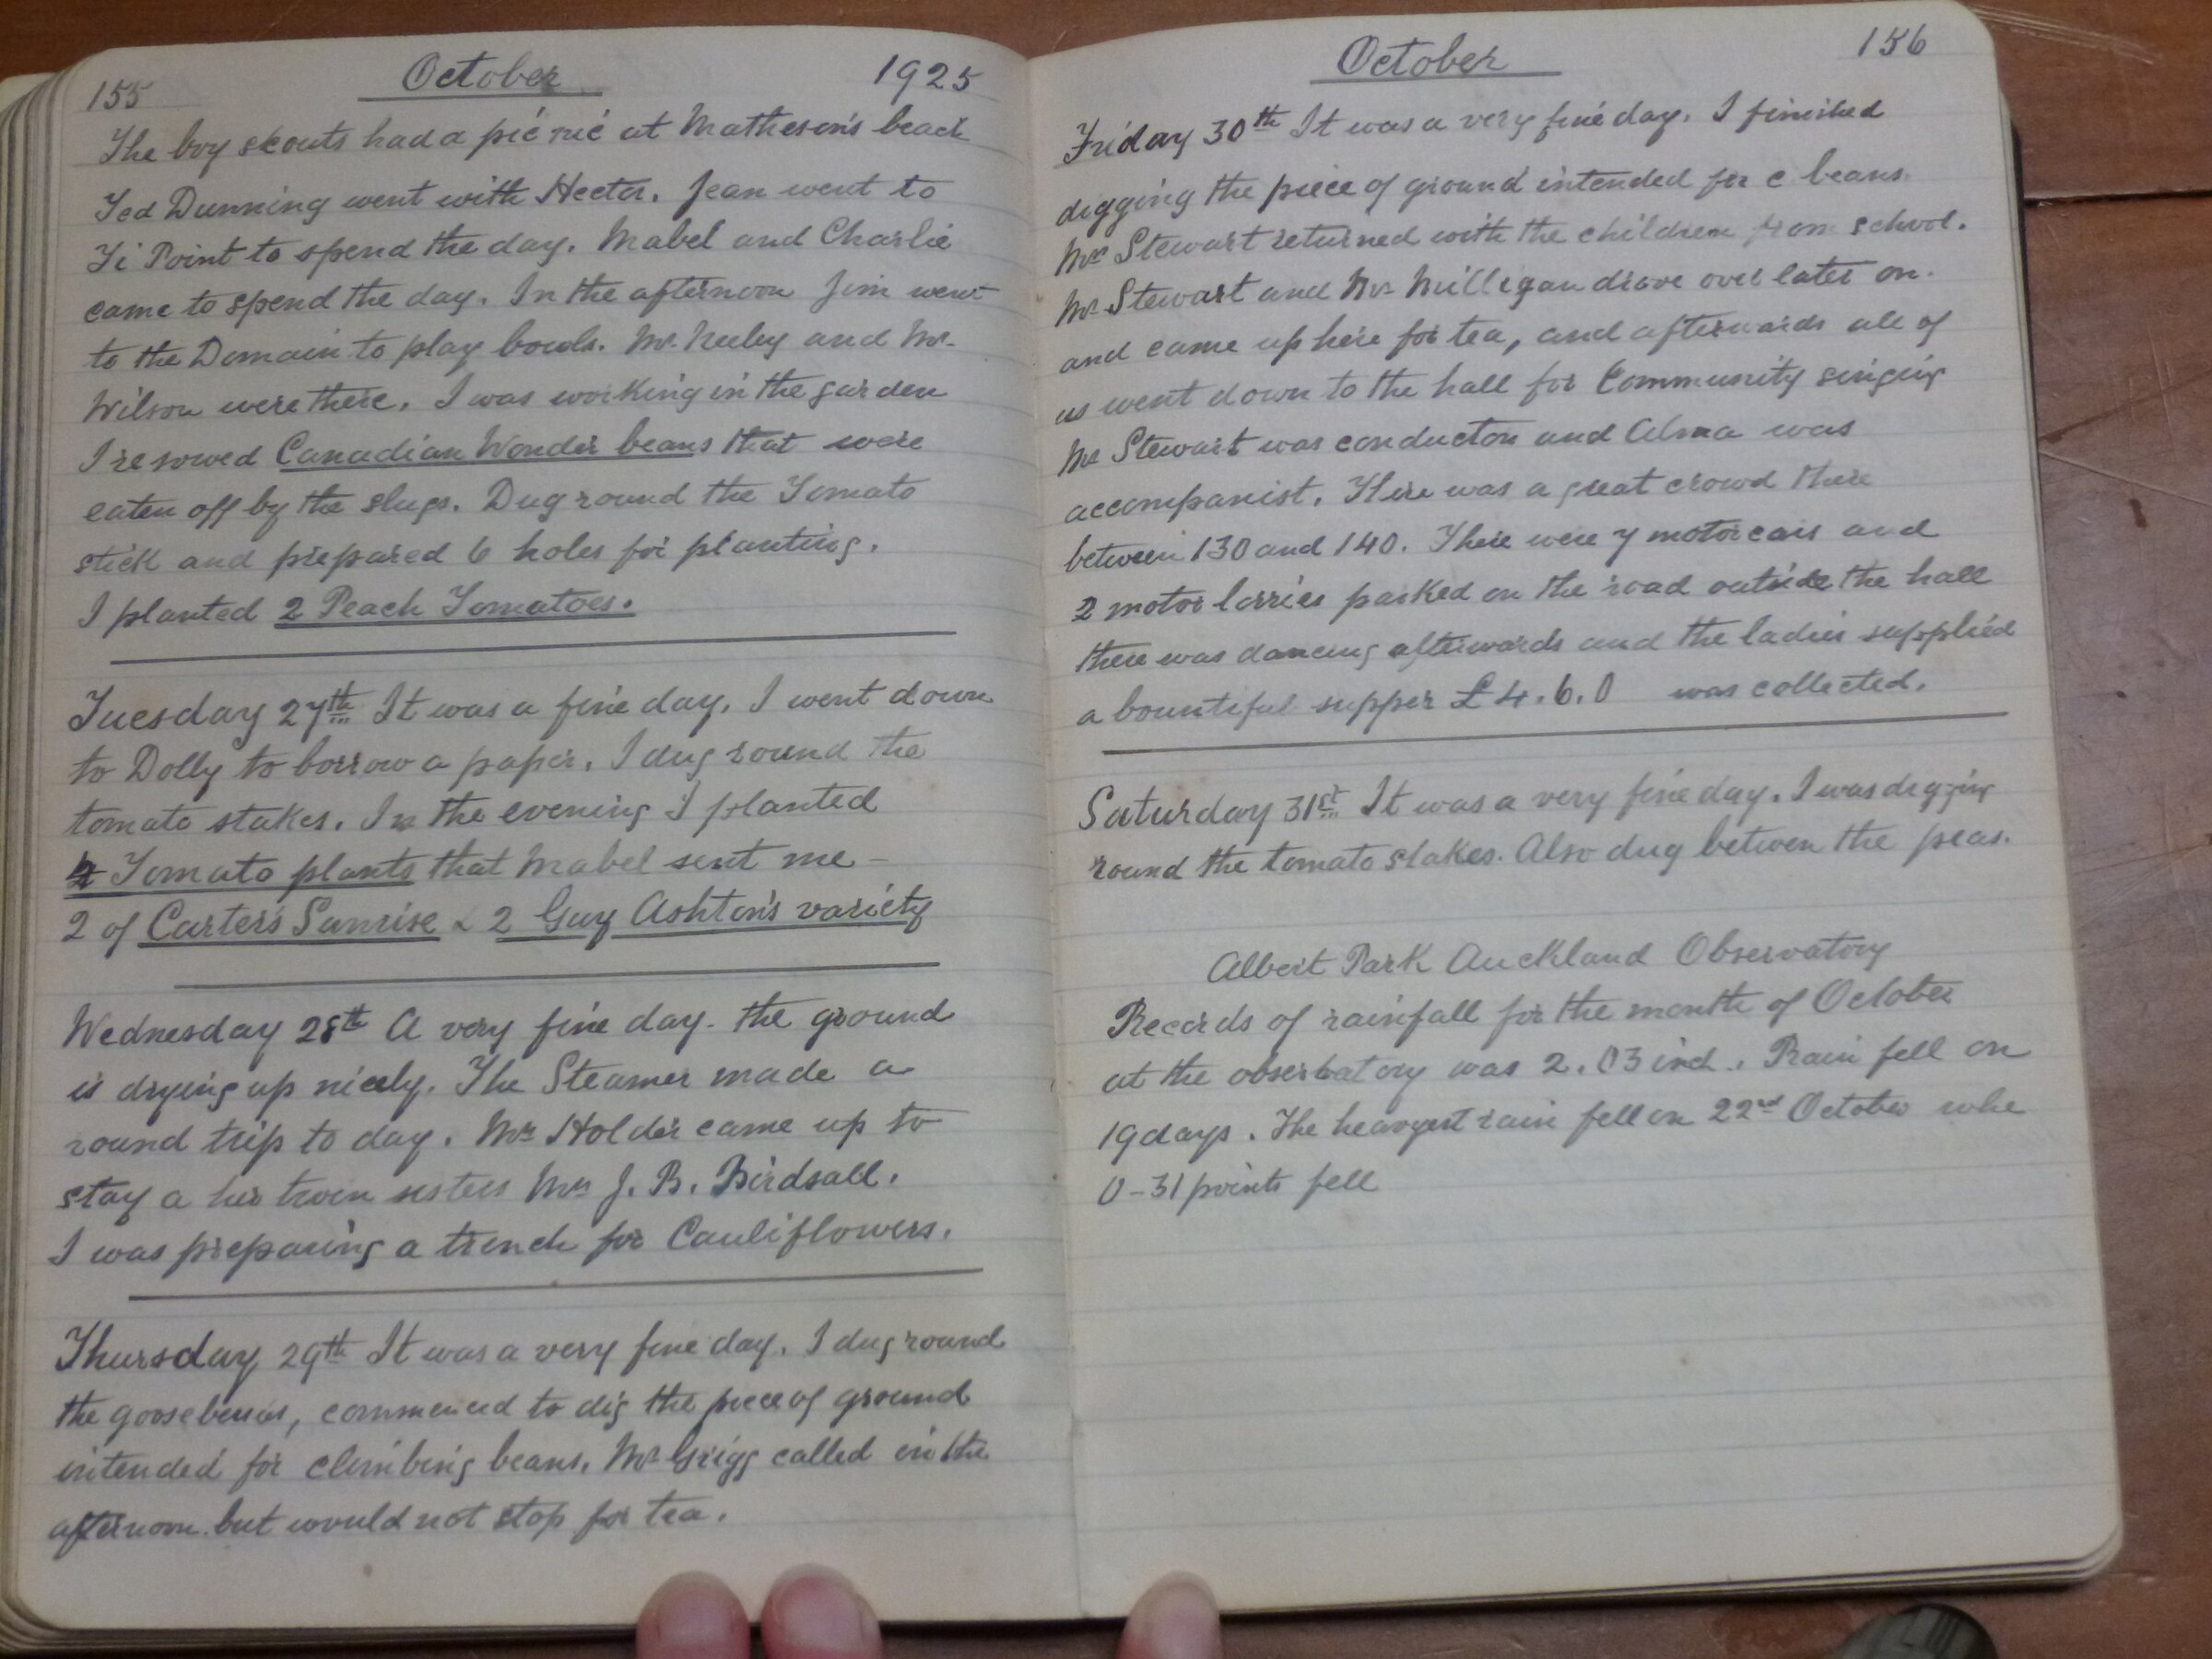 155 October 1925
The boy scouts had a pic nic at Matheson's beach
Ted Dunning went with Hector. Jean went to
Ti Point to spend the day. Mabel and Charlie
came to spend the day. In the afternoon Jim went
to the Domain to play bowls. Mr. Neeley and Mr.
Wilson were there. I was working in the garden
I resowed Canadian Wonder beans that were
eaten off by the slugs. Dug round the Tomato
stick and prepared 6 holes for planting.
I planted 2 Peach Tomatoes.
Tuesday 27th It was a fine day. I went down
to Dolly to borrow a paper. I dug round the
tomato stakes. In the evening I planted
4 Tomato plants that Mabel sent me -
2 of Carter's Sunrise & 2 Guy Ashton's variety
Wednesday 28th A very fine day. the ground
is drying up nicely. The Steamer made a
round trip to day. Mrs Holder came up to
stay a her twin sisters Mrs J. B. Birdsall.
I was preparing a trench for Cauliflowers.
Thursday 29th It was a very fine day. I dug round
the gooseberries, commenced to dig the piece of ground
intended for climbing beans. Mr Grigg called in the
afternoon but would not stop for tea.
October 156
Friday 30th It was a very fine day. I finished
digging the piece of ground intended for c beans.
Mrs Stewart returned with the children from school.
Mr Stewart and Mr. Milligan drove over later on.
and came up here for tea, and afterwards all of
us went down to the hall for Community singing
Mr Stewart was conductor and Alma was
accompanist. There was a great crowd there
between 130 and 140. There were 7 motor cars and
2 motor lorries parked on the road outside the hall
there was dancing afterwards and the ladies supplied
a bountiful supper £4.6.0 was collected.
Saturday 31st It was a very fine day. I was digging
round the tomato stakes. Also dug betwen the peas.
Albert Park Auckland Observatory
Records of rainfall for the month of October
at the observatory was 2.03 inch. Rain fell on
19 days. The heavyest rain fell on 22nd October whe
0-31 points fell